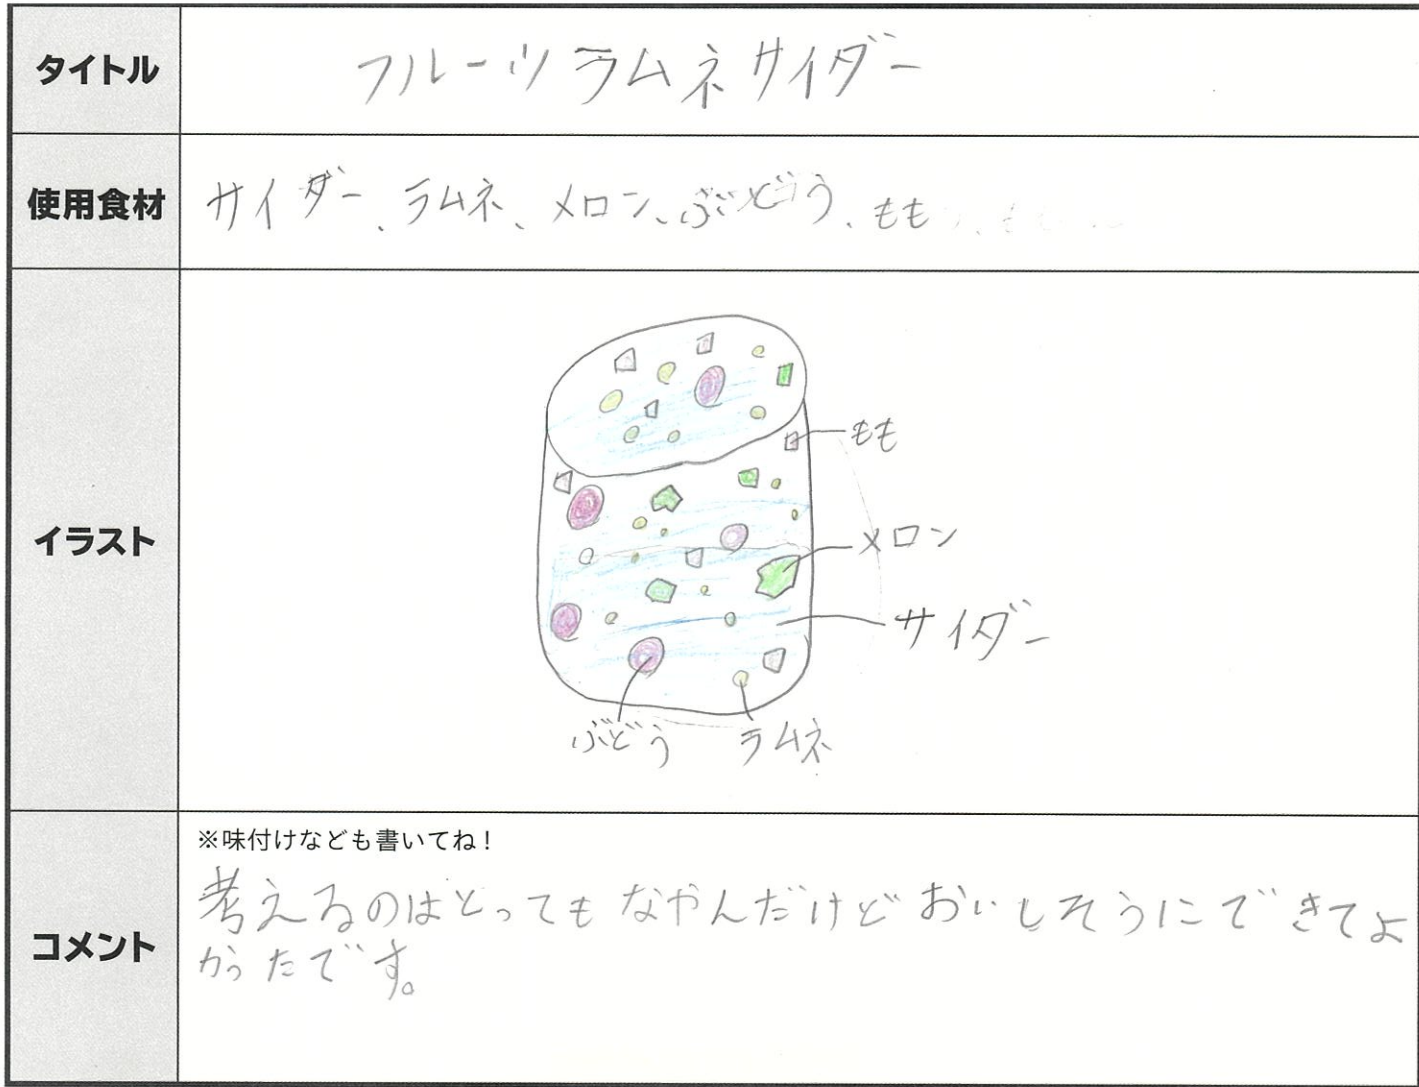 タイトル
フルーツラムネサイダー
使用食材
サイダー、ラムネ、メロン、ぶどう、もも
イラスト
もも
メロン
サイダー
ぶどう
ラムネ
コメント
※味付けなども書いてね！
考えるのはとってもなやんだけどおいしそうにできてよ
かったです。